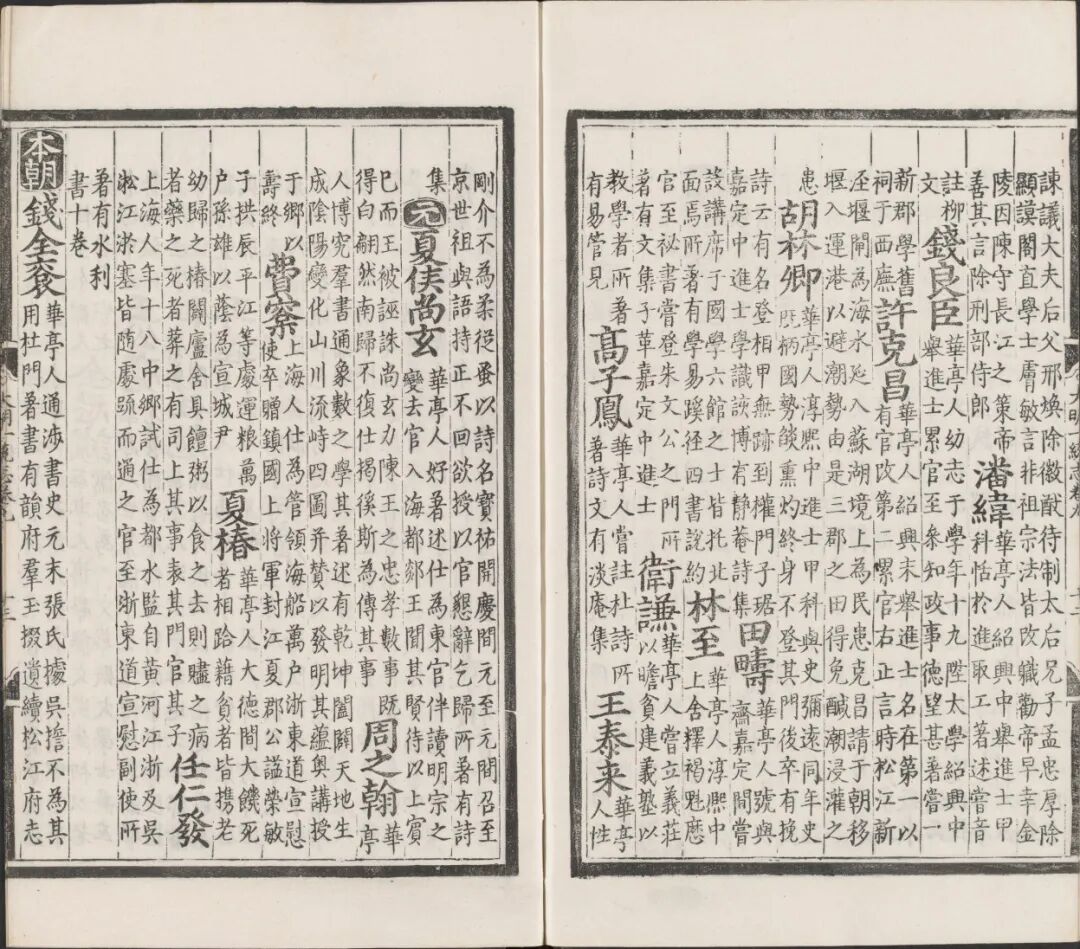 諫議大夫后父邢煥除徽猷待制太后兄子孟忠厚除
顯謨閣直學士膚敏言非祖宗法皆改職勸帝早幸金
陵因陳守長江之策帝
善其言除刑部侍郎
潘緯
華亭人紹興中舉進士甲
科恬於進取工著述嘗音
註柳
文
錢良臣
華亭人幼志于學年十九陞太學紹興中
舉進士累官至參知政事德望甚著嘗一
新郡學舊
祠于西廡
許克昌
華亭人紹興末舉進士名在第一以
有官改第二累官右正言時松江新
涇堰閘為海水迯入蘇湖境上為民患克昌請于朝移
堰入運港以避潮勢由是三郡之田得免鹹潮浸灌之
患
胡林卿
華亭人淳熙中進士甲科與史彌遠同年史
既柄國勢燄熏灼終身不登其門後卒有挽
詩云有名登相甲無跡到權門子琚
嘉定中進士學識該博有靜菴詩集
田疇
華亭人號與
齋嘉定間嘗
設講席于國學六館之士皆托北
面焉所著有學易蹊徑四書說約
林至
華亭人淳熙中
上舍釋褐
官至祕書嘗登朱文公之門所
著有文集子革嘉定中進士
衛謙
華亭人嘗立義莊
以贍貧建義塾以
教學者所著
有易管見
高子鳳
華亭人嘗註杜詩所
著詩文有淡庵集
王泰来
華亭
人性
大明一統志卷九
十二
剛介不為柔從蚤以詩名寶祐開慶間元至元間召至
京世祖與語持正不回欲授以官懇辭乞歸所著有詩
集
元
夏侯尚玄
華亭人好著述仕為東宮伴讀明宗之
變去官入海都郯王聞其賢待以上賓
巳而王被誣誅尚玄力陳王之忠孝數事既
得白翩然南歸不復仕揭徯斯為傳其事
周之翰
華
亭
人博究羣書通象數之學其著述有乾坤闔闢天地生
成陰陽變化山川流峙四圖并贊以發明其蘊奧講授
于鄉以
壽終
費寀
上海人仕為管領海船萬户浙東道宣慰
使卒贈鎮國上將軍封江夏郡公諡榮敏
子拱辰平江等處運粮萬
户孫雄以蔭為宣城尹
夏椿
華亭人大德間大饑死
者相跲藉貧者皆携老
幼歸之椿闢廬舍具饘粥以食之去則贐之病
者藥之死者葬之有司上其事表其門官其子
任仁發
上海人年十八中鄉試仕為都水監自黄河江浙及吳
淞江淤塞皆随處疏而通之官至浙東道宣慰副使所
著有水利
書十卷
本朝
錢全衮
華亭人通渉書史元末張氏據吳擔不為其
用杜門著書有韻府羣玉掇遺續松江府志